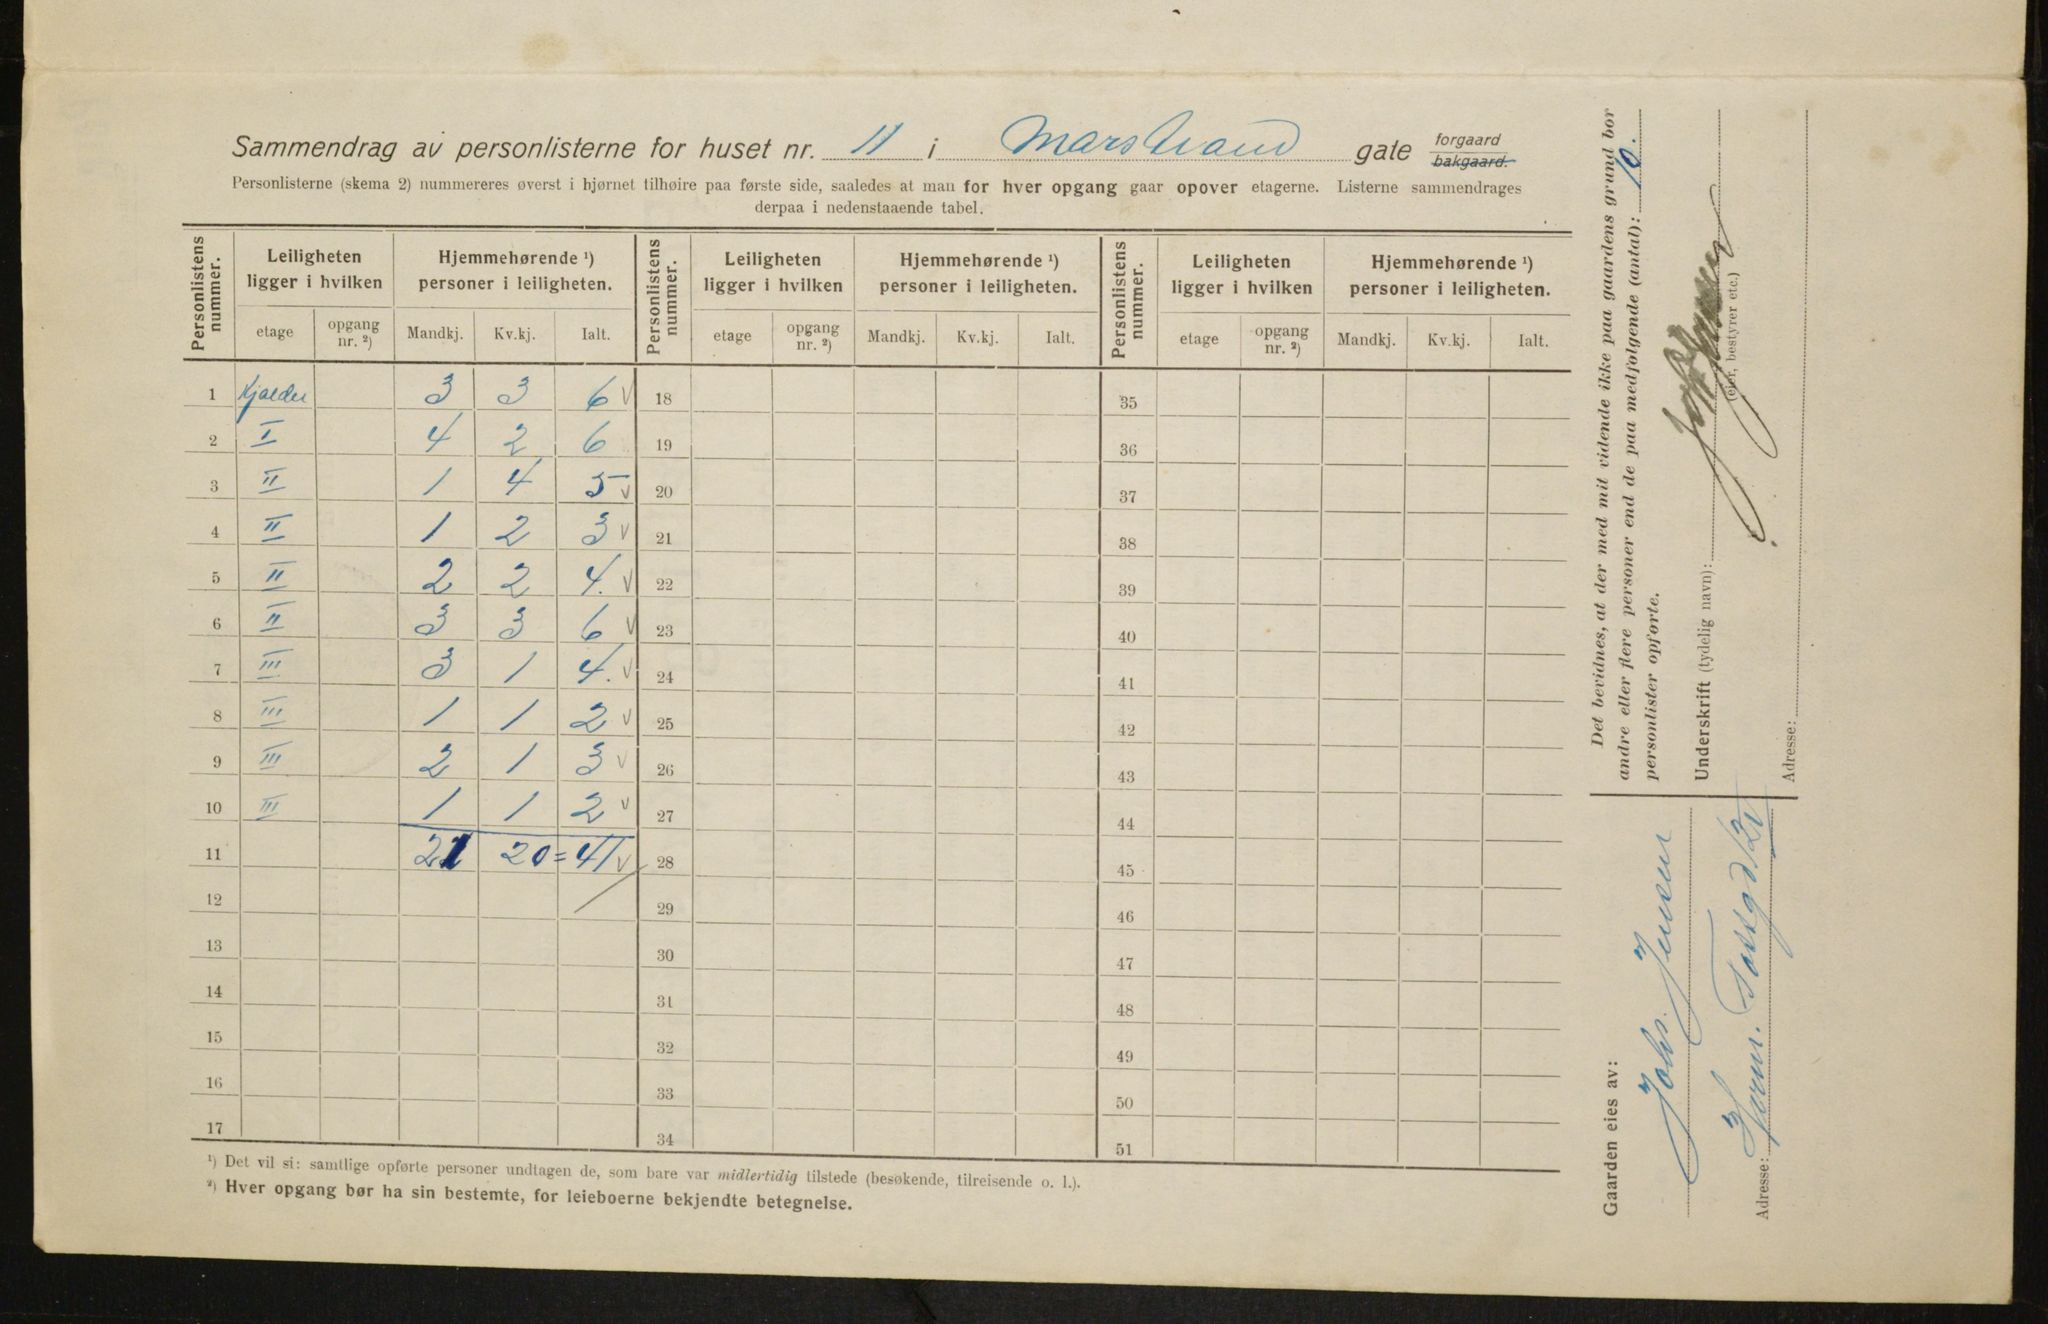 Sammendrag av personlisterne for huset nr. 11 i Marstrand gate forgaard bakgaard.
Personlisterne (skema 2) nummereres øverst i hjørnet tilhøire paa første side, saaledes at man for hver opgang gaar opover etagerne. Listerne sammendrages
derpaa i nedenstaaende tabel.
Personlistens nummer. Leiligheten ligger i hvilken Hjemmehørende ¹) personer i leiligheten. Personlistens nummer. Leiligheten ligger i hvilken Hjemmehørende ¹) personer i leiligheten. Personlistens nummer. Leiligheten ligger i hvilken Hjemmehørende ¹) personer i leiligheten.
etage opgang nr. ²) Mandkj. Kv.kj. Ialt. etage opgang nr. ²) Mandkj. Kv.kj. Ialt. etage opgang nr. ²) Mandkj. Kv.kj. Ialt.
1 Kjælder 3 3 6 v 18 35
2 I 4 2 6 19 36
3 II 1 4 5 v 20 37
4 II 1 2 3 v 21 38
5 II 2 2 4. v 22 39
6 II 3 3 6 v 23 40
7 III 3 1 4. v 24 41
8 III 1 1 2 v 25 42
9 III 2 1 3 v 26 43
10 III 1 1 2 v 27 44
11 21 20 = 41 v 28 45
12 29 46
13 30 47
14 31 48
15 32 49
16 33 50
17 34 51
¹) Det vil si: samtlige opførte personer undtagen de, som bare var midlertidig tilstede (besøkende, tilreisende o. l.).
²) Hver opgang bør ha sin bestemte, for leieboerne bekjendte betegnelse.
Det bevidnes, at der med mit vidende ikke paa gaardens grund bor
andre eller flere personer end de paa medfølgende (antal): 10.
personlister opførte.
Underskrift (tydelig navn):
(eier, bestyrer etc.)
Adresse:
Gaarden eies av:
Johs. Jensen
Adresse: